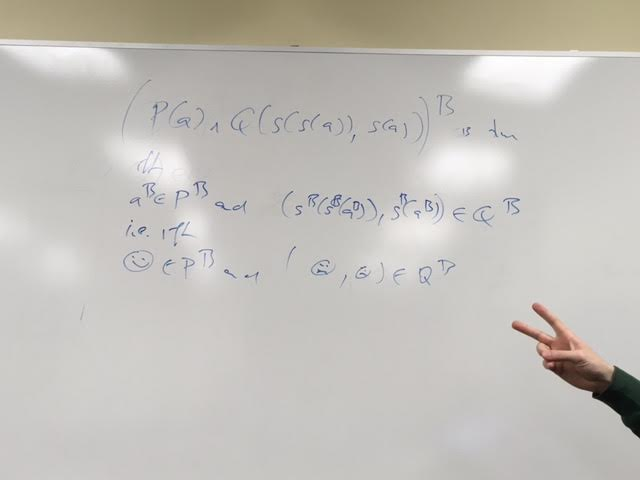 (P(a) ∧ Q(s(s(a)), s(a)))^𝔅 is true
iff
a^𝔅 ∈ P^𝔅 and (s^𝔅(s^𝔅(a^𝔅)), s^𝔅(a^𝔅)) ∈ Q^𝔅
i.e. iff
☺ ∈ P^𝔅 and ( , ) ∈ Q^𝔅